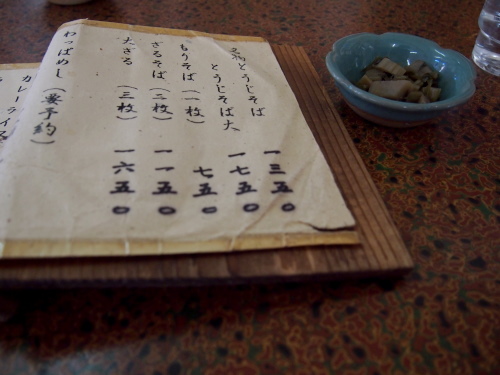 名物とうじそば 一三五〇
とうじそば大 一七五〇
もりそば(一枚) 七五〇
ざるそば(二枚) 一一五〇
大ざる(三枚) 一六五〇
わっぱめし(要予約)
カレーライス